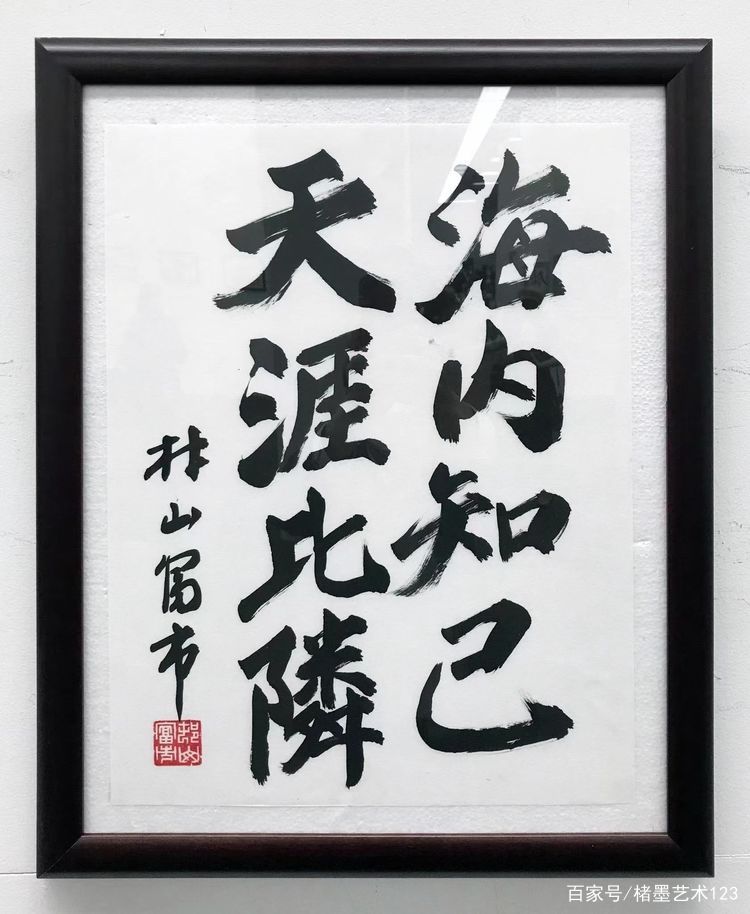 海内知己
天涯比隣
村山富市
邨山富市
百家号/楮墨艺术123